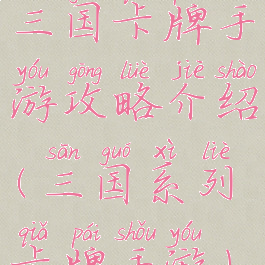 三国卡牌手
yóu gōng lüè jiè shào
游攻略介绍
sān guó xì liè
(三国系列
qiǎ pái shǒu yóu
卡牌手游)